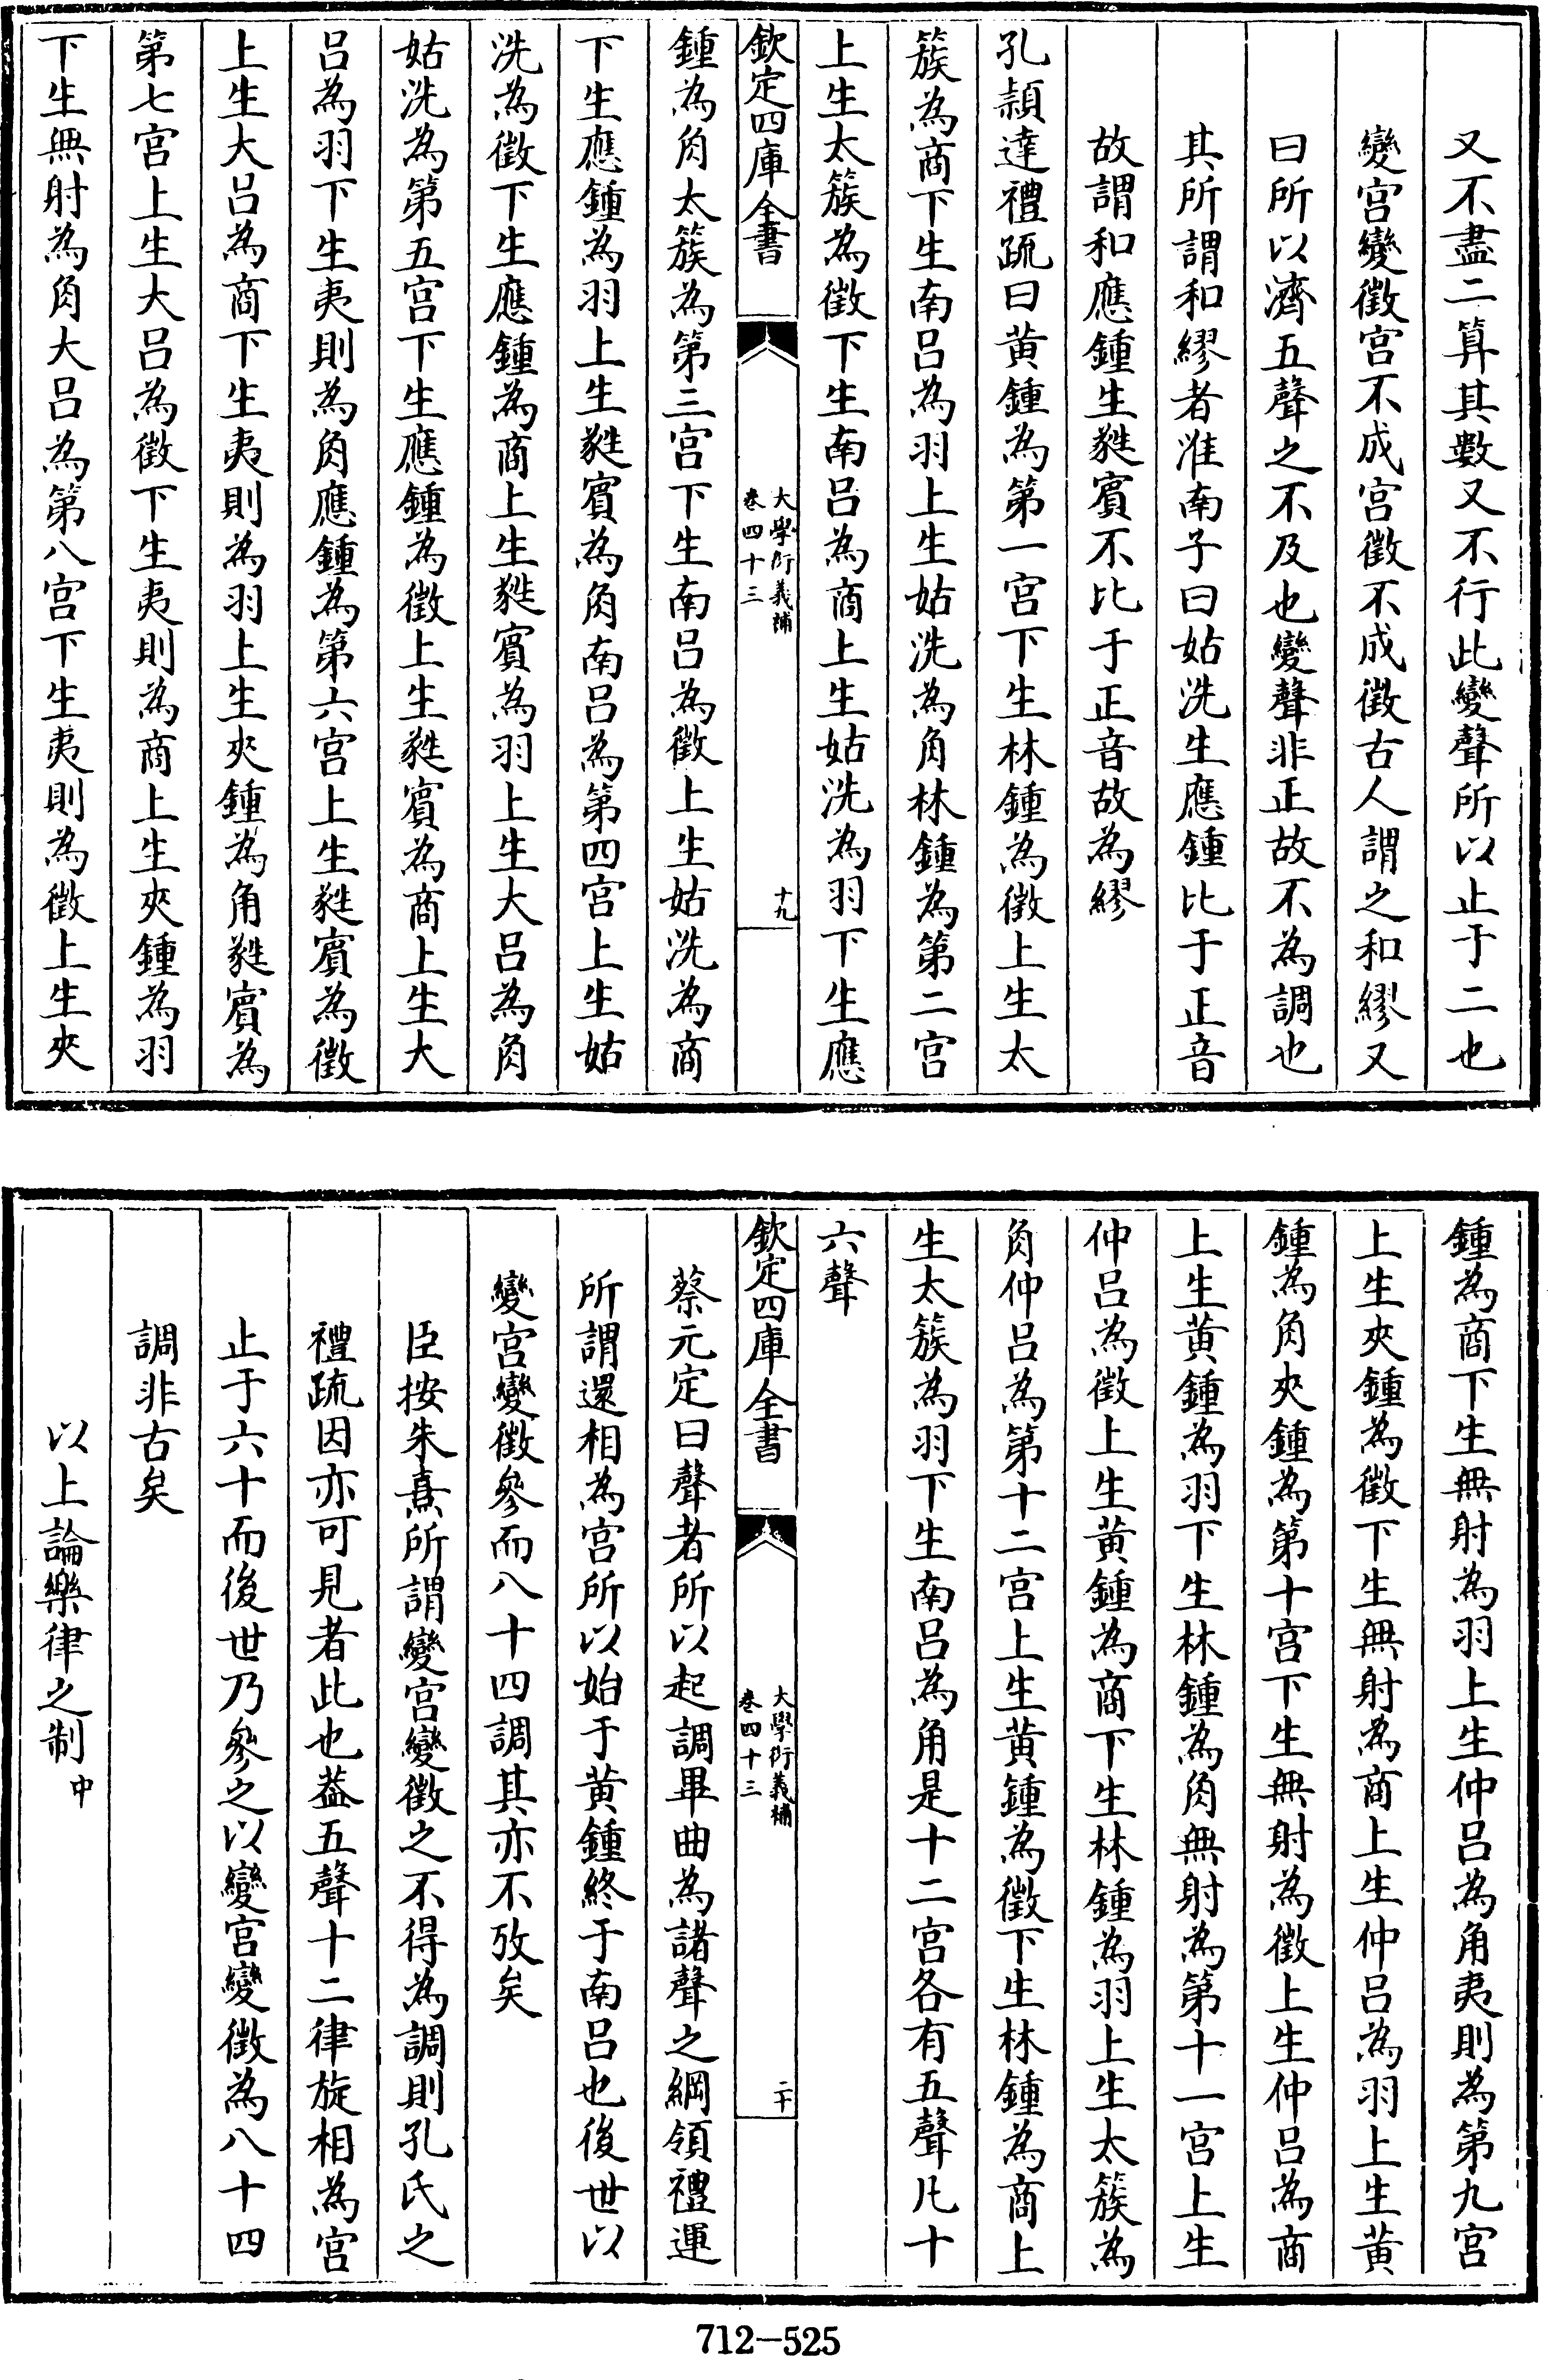 又不盡二算其數又不行此變聲所以止于二也
變宫變徵宫不成宫徵不成徵古人謂之和繆又
曰所以濟五聲之不及也變聲非正故不為調也
其所謂和繆者淮南子曰姑洗生應鍾比于正音
故謂和應鍾生蕤賓不比于正音故為繆
孔頴達禮疏曰黄鍾為第一宫下生林鍾為徵上生太
簇為商下生南呂為羽上生姑洗為角林鍾為第二宫
上生太簇為徵下生南呂為商上生姑洗為羽下生應
欽定四庫全書
大學衍義補
卷四十三
十九
鍾為角太簇為第三宫下生南呂為徵上生姑洗為商
下生應鍾為羽上生蕤賓為角南呂為第四宫上生姑
洗為徵下生應鍾為商上生蕤賓為羽上生大呂為角
姑洗為第五宫下生應鍾為徵上生蕤賓為商上生大
呂為羽下生夷則為角應鍾為第六宫上生蕤賓為徵
上生大呂為商下生夷則為羽上生夾鍾為角蕤賓為
第七宫上生大呂為徵下生夷則為商上生夾鍾為羽
下生無射為角大呂為第八宫下生夷則為徵上生夾
鍾為商下生無射為羽上生仲呂為角夷則為第九宫
上生夾鍾為徵下生無射為商上生仲呂為羽上生黄
鍾為角夾鍾為第十宫下生無射為徵上生仲呂為商
上生黄鍾為羽下生林鍾為角無射為第十一宫上生
仲呂為徵上生黄鍾為商下生林鍾為羽上生太簇為
角仲呂為第十二宫上生黄鍾為徵下生林鍾為商上
生太簇為羽下生南呂為角是十二宫各有五聲凡十
六聲
欽定四庫全書
大學衍義補
卷四十三
二十
蔡元定曰聲者所以起調畢曲為諸聲之綱領禮運
所謂還相為宫所以始于黄鍾終于南呂也後世以
變宫變徵參而八十四調其亦不攷矣
臣按朱熹所謂變宫變徵之不得為調則孔氏之
禮疏因亦可見者此也葢五聲十二律旋相為宫
止于六十而後世乃參之以變宫變徵為八十四
調非古矣
以上論樂律之制中
712-525